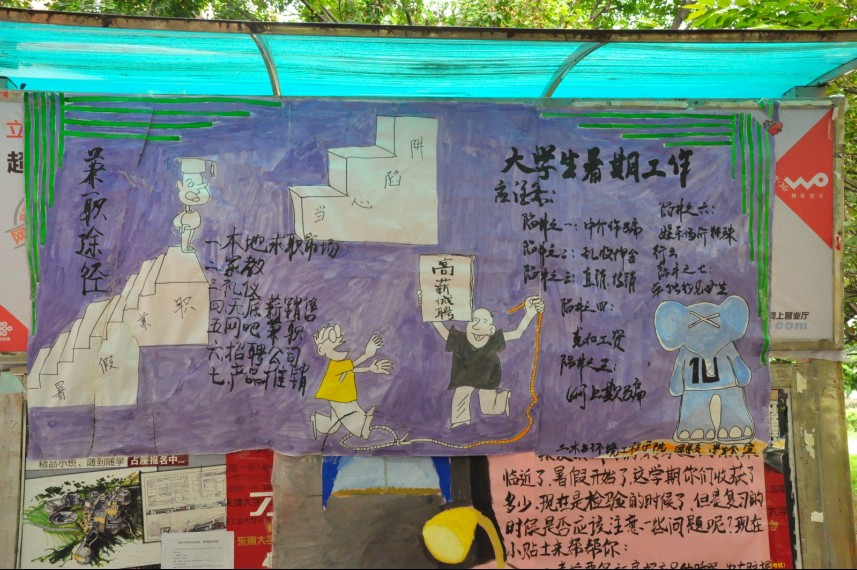 兼职途径
一.本地求职市场
二.家教
三.礼仪
四.无底薪销售
五.网吧兼职
六.招聘公司
七.产品推销
暑假兼职
当心陷阱
高薪诚聘
大学生暑期工作
应注意:
陷井之一:中介诈骗
陷井之二:乱收押金
陷井之三:直销传销
陷井之四:
克扣工资
陷井之五:
网上欺骗
陷井之六:
娱乐场所特殊
行业
陷井之七:
10
精品小班、随到随学
占座报名中...
临近了.暑假开始了.这学期你们收获了
多少.现在是检验的时候了.但是复习的
时候是否应该注意一些问题呢?现在
小贴士来帮帮你:
东南大学
网上营业厅
.com